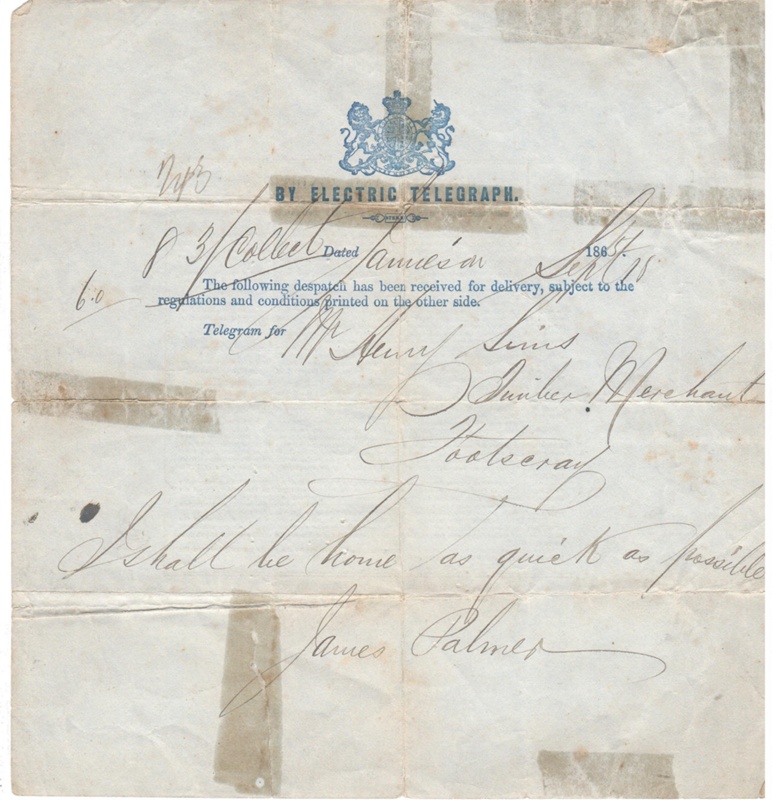 BY ELECTRIC TELEGRAPH.
8 3/ Collect Dated Jamieson Sept 186
6.0
The following despatch has been received for delivery, subject to the
regulations and conditions printed on the other side.
Telegram for Mr Henry Sims
Timber Merchant
Footscray
I shall be home as quick as possible
James Palmer